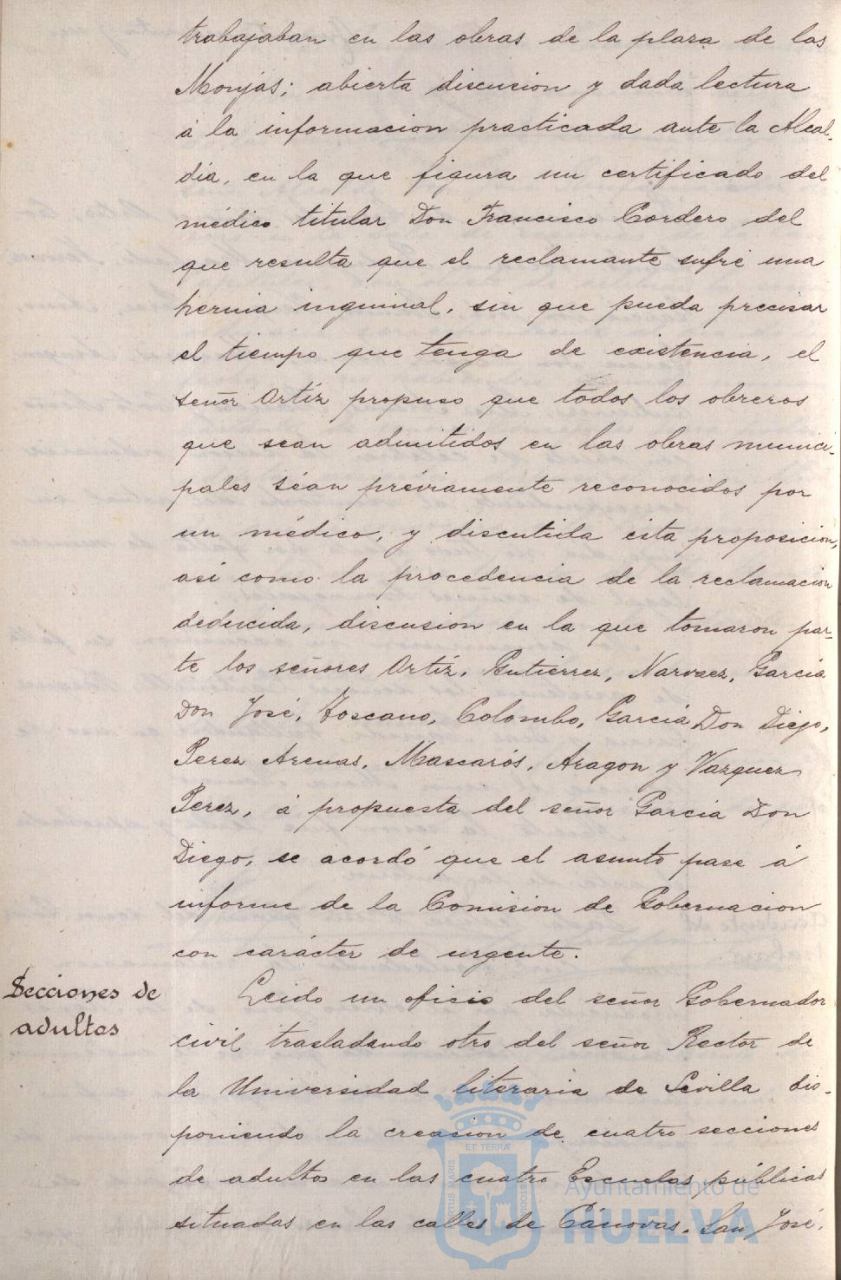 trabajaban en las obras de la plaza de las
Monjas; abierta discusion y dada lectura
á la informacion practicada ante la Alcal-
dia, en la que figura un certificado del
médico titular Don Francisco Cordero del
que resulta que el reclamante sufre una
hernia inguinal, sin que pueda precisar
el tiempo que tenga de existencia, el
señor Ortíz propuso que todos los obreros
que sean admitidos en las obras munici-
pales séan préviamente reconocidos por
un médico, y discutida esta proposicion,
asi como la procedencia de la reclamacion
deducida, discusion en la que tomaron par-
te los señores Ortíz, Gutierrez, Narvaez, García
Don José, Toscano, Colombo, García Don Diego,
Perez Arenas, Mascarós, Aragon y Vazquez
Perez, á propuesta del señor García Don
Diego, se acordó que el asunto pase á
informe de la Comision de Gobernacion
con carácter de urgente.
Secciones de
adultos
Leido un oficio del señor Gobernador
civil trasladando otro del señor Rector de
la Universidad literaria de Sevilla dis-
poniendo la creacion de cuatro secciones
de adultos en las cuatro Escuelas públicas
situadas en las calles de Cánovas, San José,
Ayuntamiento de
HUELVA